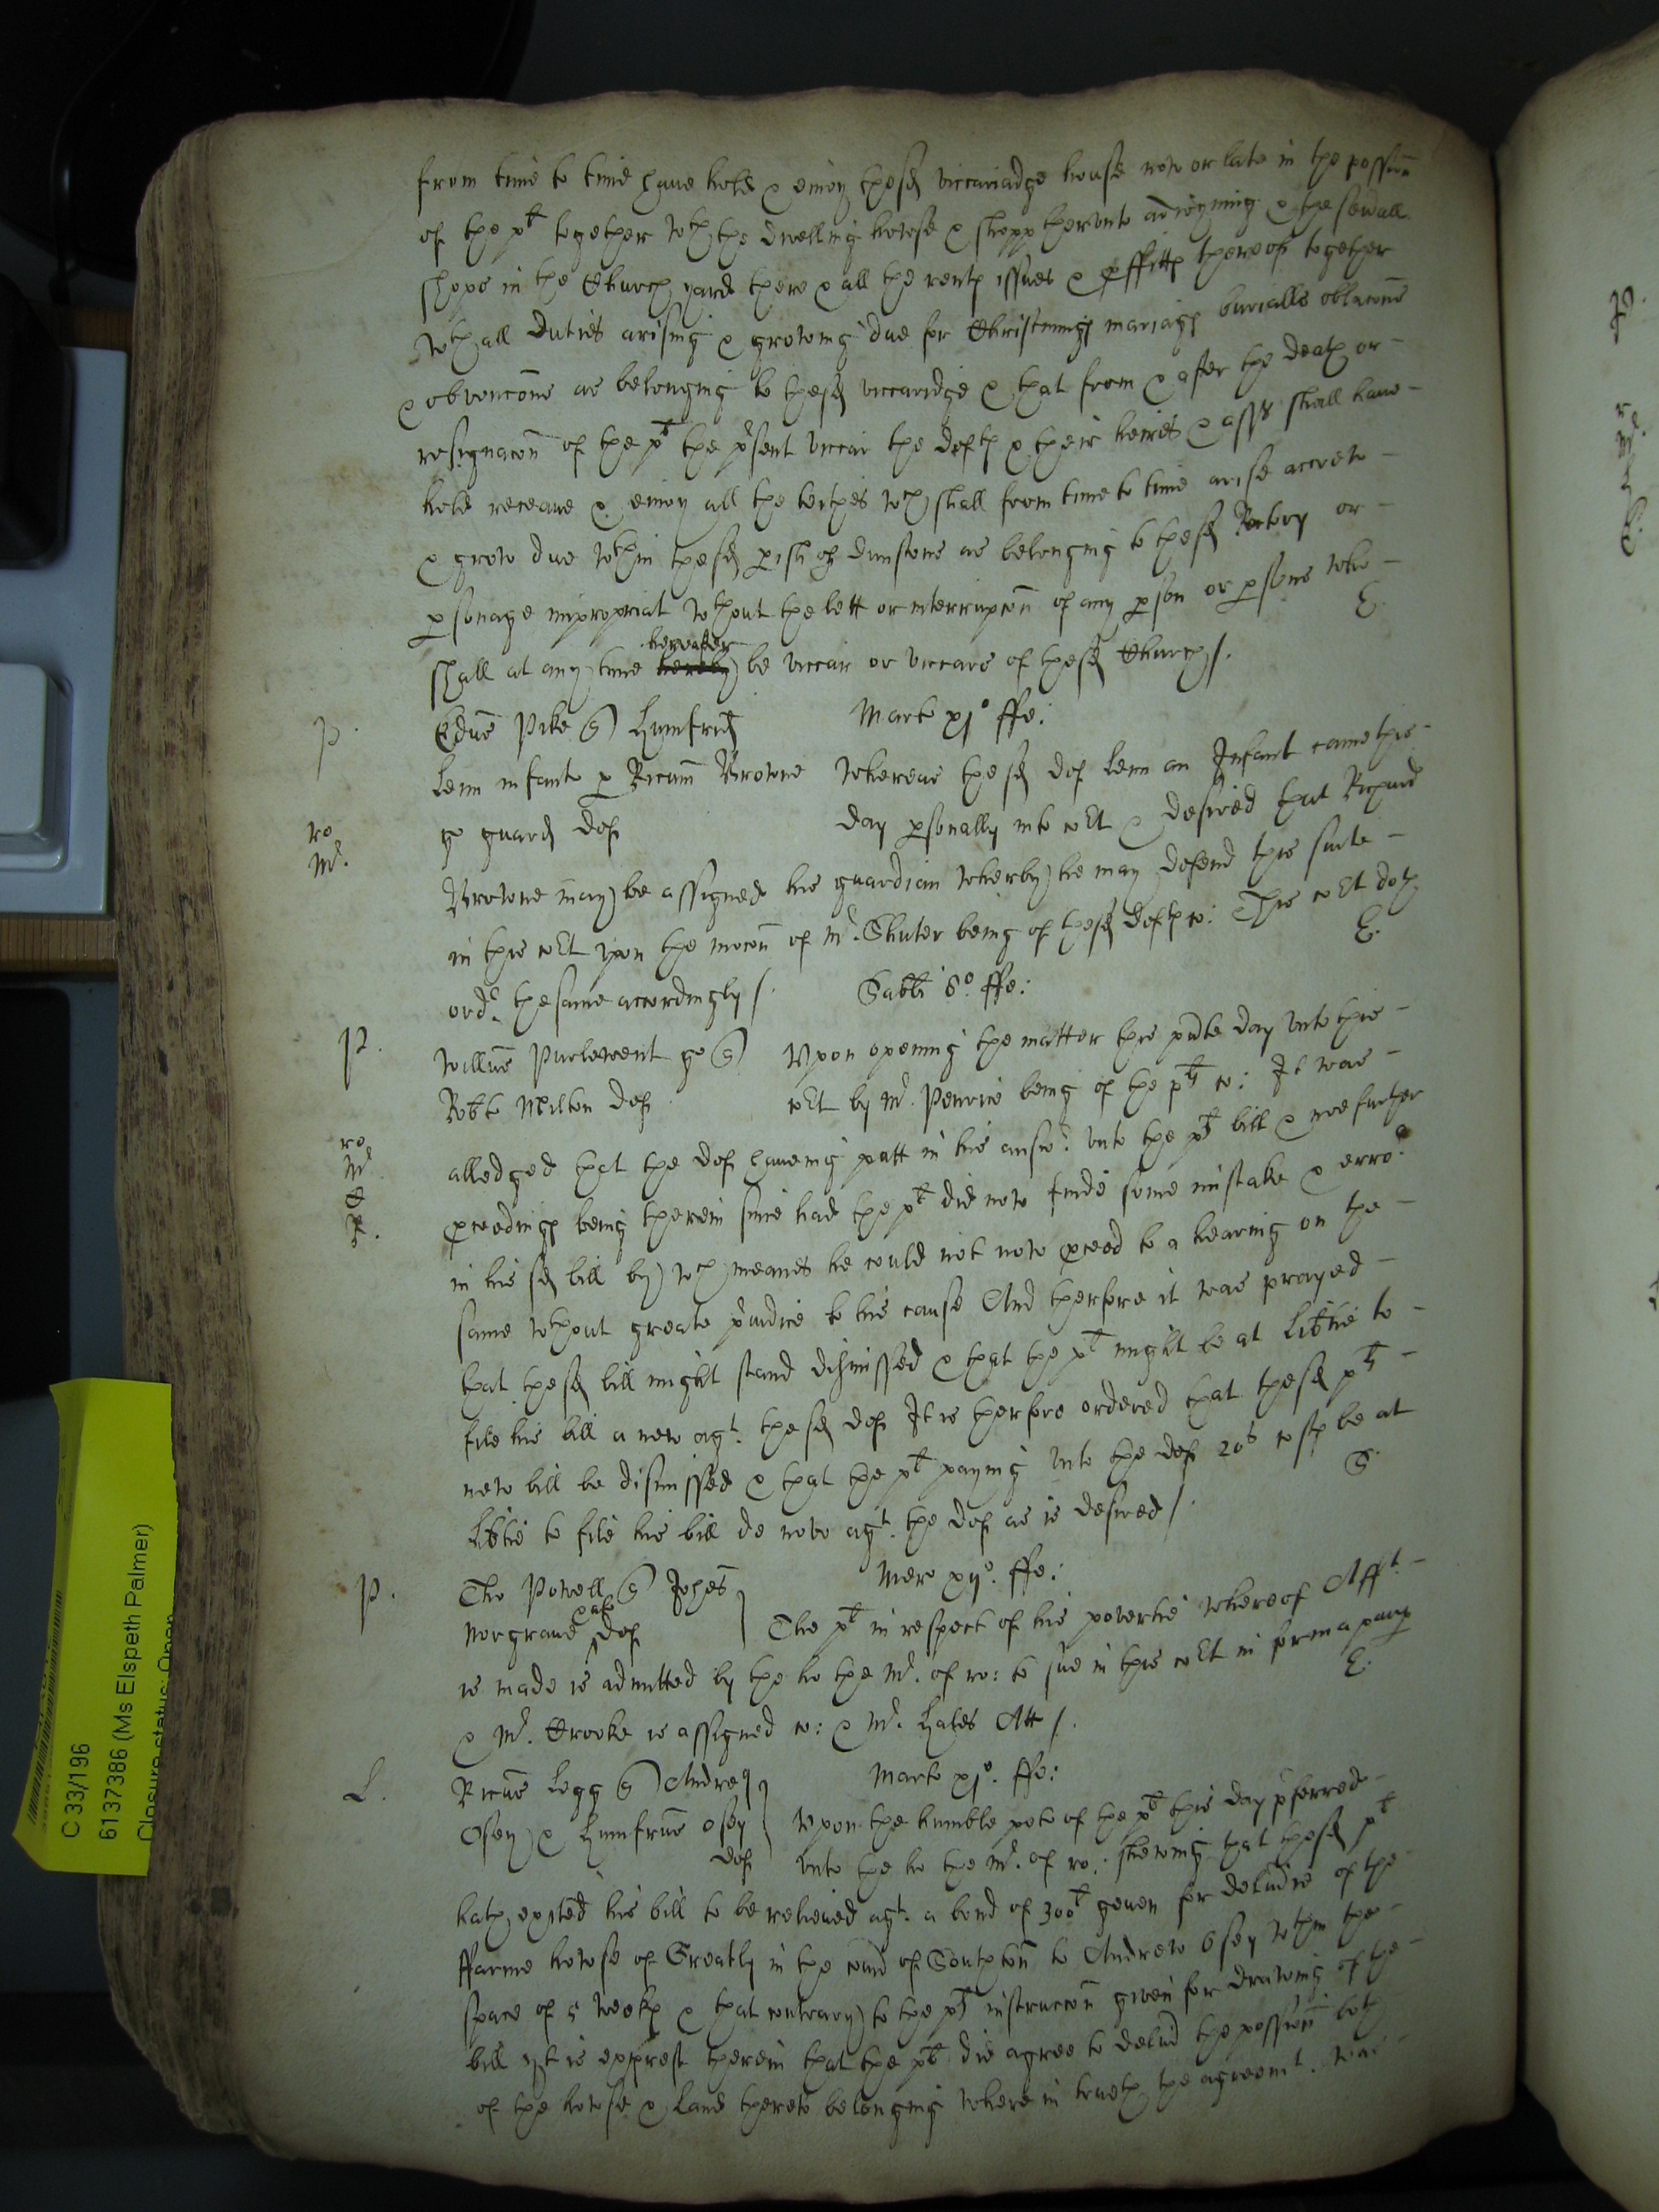 from time to time have hold & enioy the sd viccariadge house now or late in the possion
of the plt together wth the dwelling howse & shopp therunto adioyning & the sevall
shops in the Church yard there & all the rents issues & pffitts thereof together
wth all duties arising & growing due for Christnings mariags burialls oblacons
& obvencons as belonging to the sd viccaridge & that from & after the death or
resignacon of the plt the pesent viccar the defts & their heires & assss shall have
hold receave & enioy all the teithes wch shall from time to time arise accrew
& grow due wthin the sd pish of Dunstons as belonging to the sd Rectory or
psonage impropriat wthout the lett or interrupcon of any pson or psons who
E.
hereafter
shall at any time hereby be viccar or viccars of the sd Church /.
P.
Edus Pike Humfrid Marte xjo ffe:
Lem infante p Ricum Browne Whereas the sd def Lem an Infant came this
go guard def day psonally into cot & desired that Richard
ro
Mr.
Browne may be assigned his guardian wherby he may defend this suite
in this cot upon the mocon of Mr. Shuter being of the sd defts co: This cot doth
E.
ordr the same accordingly /. Sabti 8o ffe:
P.
Willus Purlewent ge Upon opening the matter this pnte day unto this
Robte Milton def cot by Mr. Penrice being of the plts co: It was
ro
Mr.
C
R.
alledged that the def haveing patt in his answr. unto the plts bill & noe further
pceedings being therein since had the plt did now finde some mistake & error
in his sd bill by wch meanes he could not now pceed to a hearing on the
same wthout greate preiudice to his cause And therfore it was prayed
that the sd bill might stand dismissed & that the plt might be at libtie to
file his bill a new agt. the sd def It is therfore ordered that the sd plts
new bill be dismissed & that the plt paying unto the def 20s costs be at
S.
libtie to file his bill de novo agt. the def as is desired /.
P.
Tho Powell Johes Mere xijo. ffe:
& al
Norgrave def The plt in respect of his povertie whereof Afft.
is made is admitted by the ho the Mr. of ro: to sue in this cot in forma paup
E.
& Mr. Crooke is assigned co: & Mr. Hales Att /.
L.
Ricus Legg Andrey Marte xjo. ffe:
Osey & Humfrus Osey Upon the humble peto of the plt this day preferred
def unto the ho the Mr. of ro: shewing that the sd plt
hath exhited his bill to be releived agt. a bond of 300l geven for delivie of the
ffarme howse of Greatly in the countie of Southton to Andrew Osey wthin the
space of 5 weeks & that contrary to the plts instruccon given for drawing of the
bill yt is exprest therein that the plt did agree to deliv the possion both
of the howse & land thereto belonging where in trueth the agreemt. was
C 33/196
6137386 (Ms Elspeth Palmer)
Closure status: Open